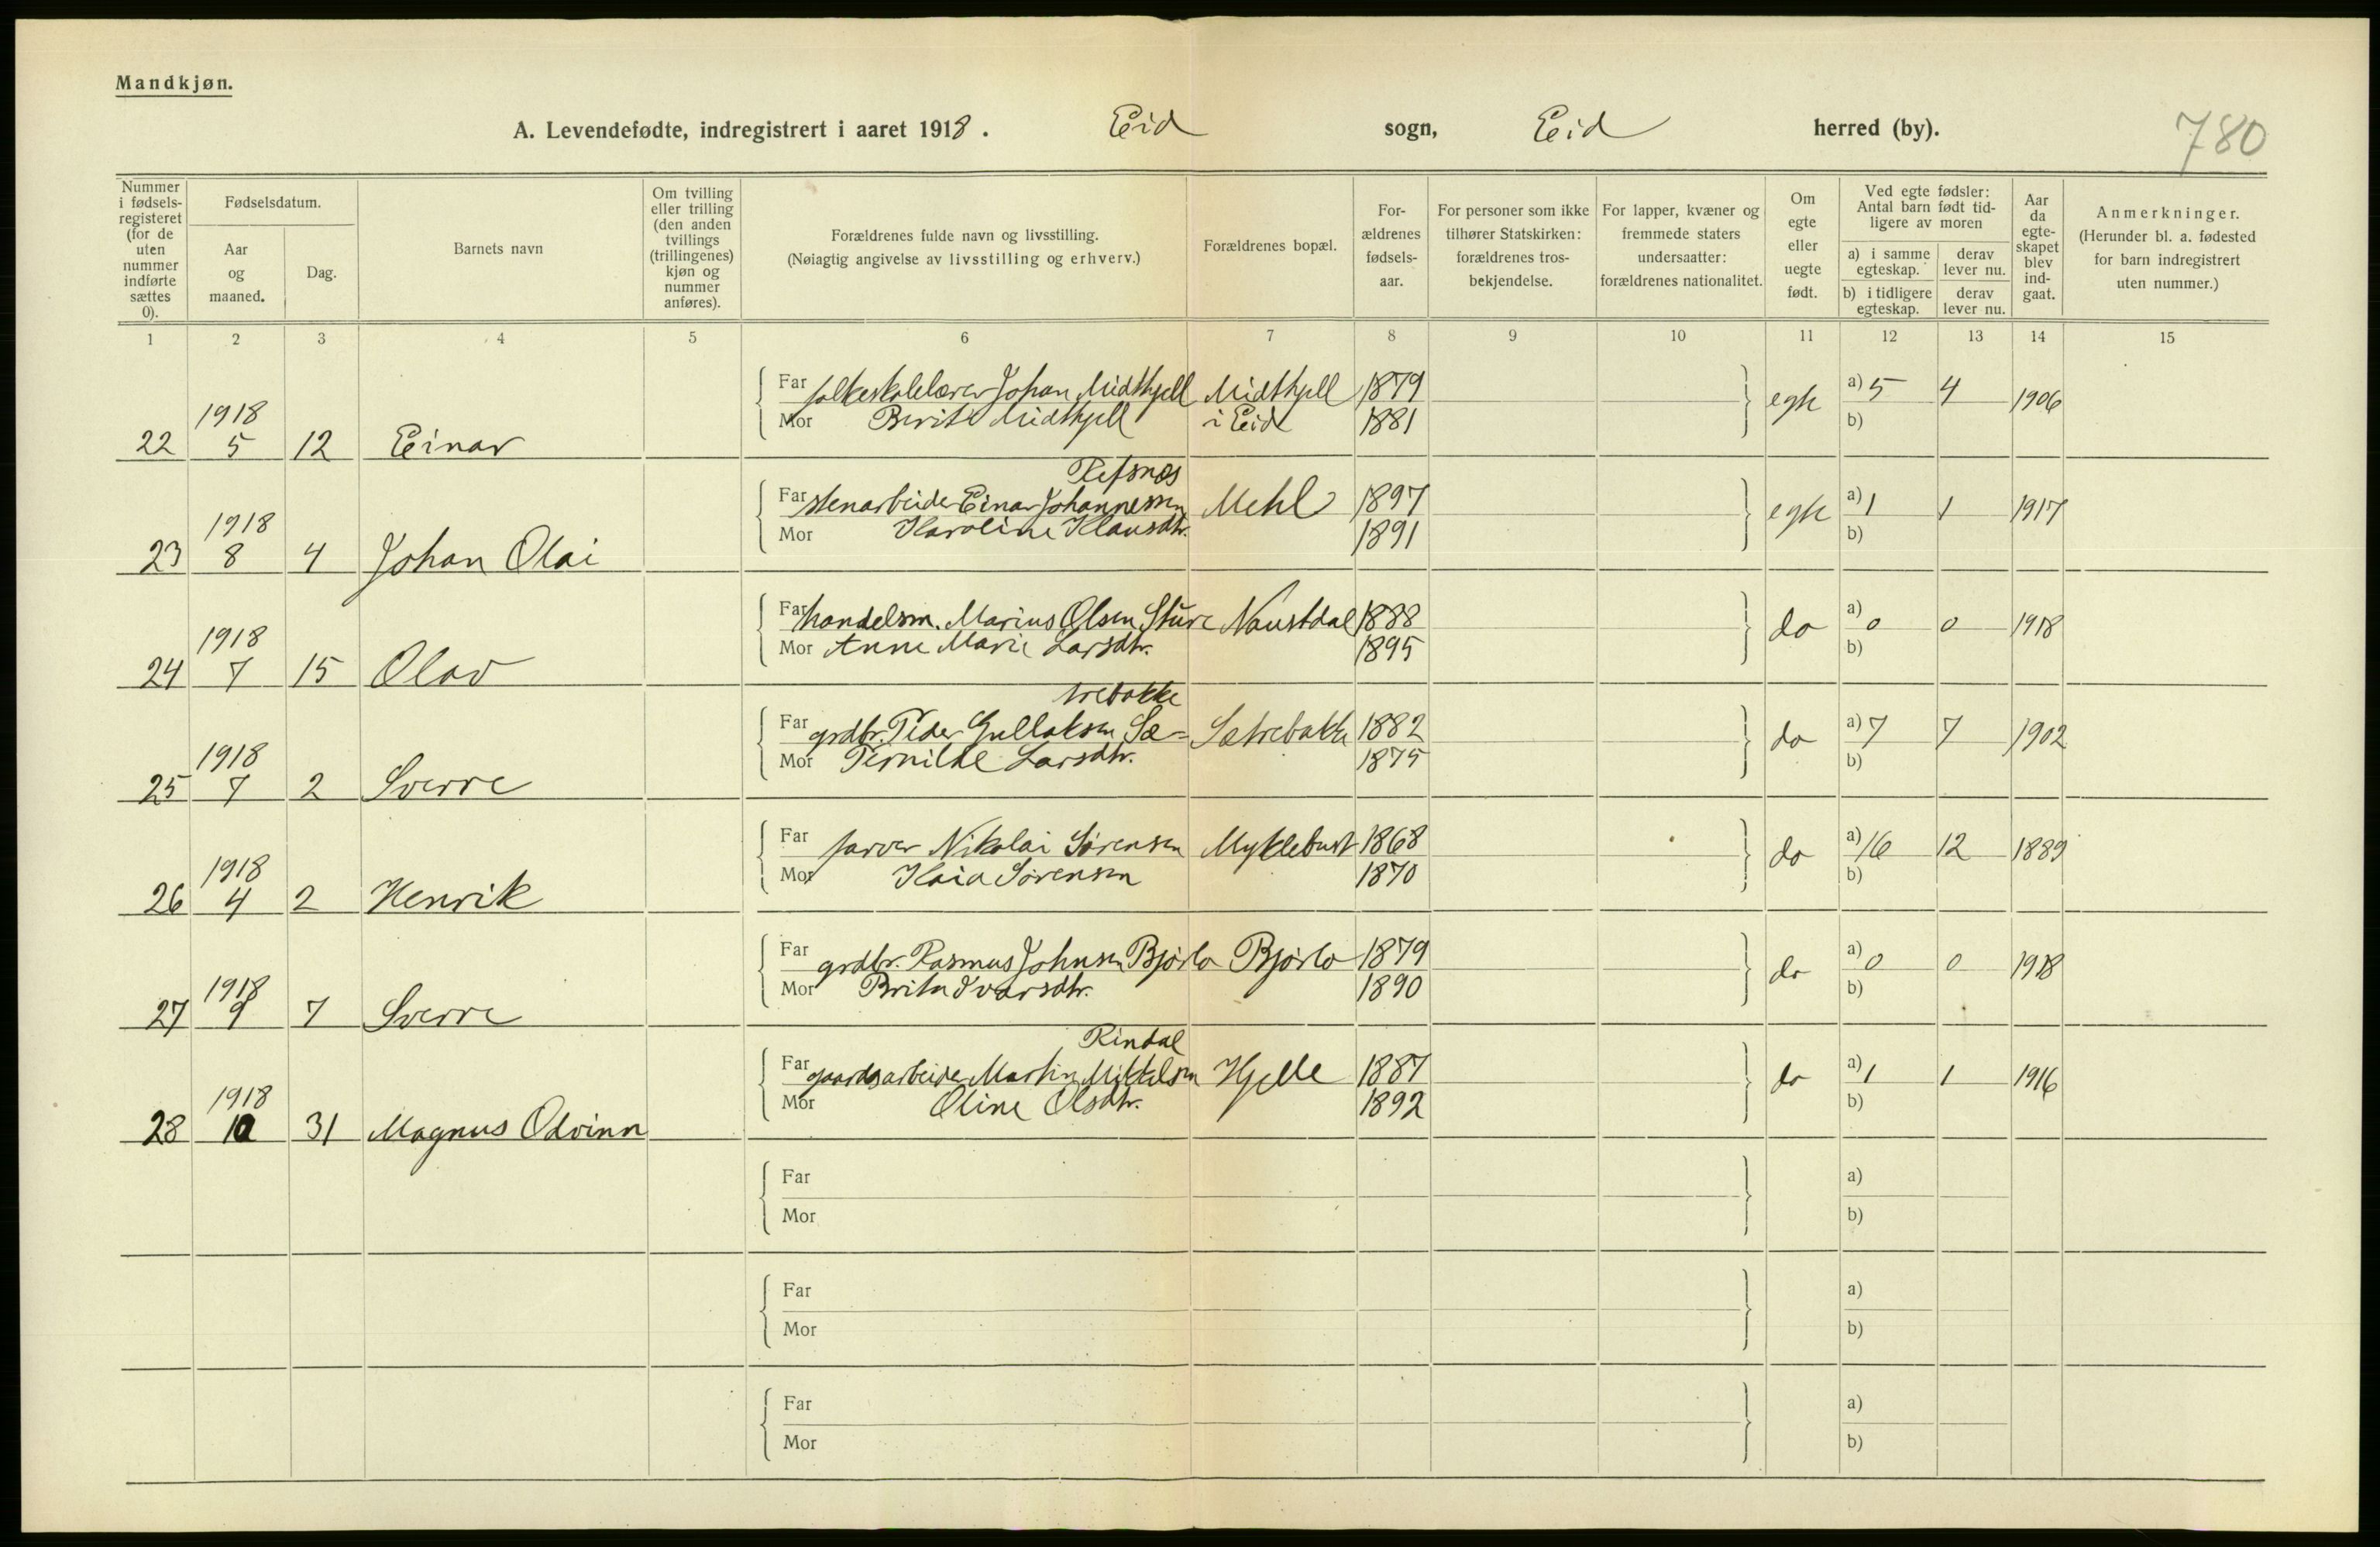 Mandkjøn.
A. Levendefødte, indregistrert i aaret 1918. Eid sogn, Eid herred (by). 780
Nummer i fødsels-registeret (for de uten nummer indførte sættes 0).
Fødselsdatum.
Aar og maaned.
Dag.
Barnets navn
Om tvilling eller trilling (den anden tvillings (trillingenes) kjøn og nummer anføres).
Forældrenes fulde navn og livsstilling.
(Nøiagtig angivelse av livsstilling og erhverv.)
Forældrenes bopæl.
For-ældrenes fødsels-aar.
For personer som ikke tilhører Statskirken: forældrenes tros-bekjendelse.
For lapper, kvæner og fremmede staters undersaatter: forældrenes nationalitet.
Om egte eller uegte født.
Ved egte fødsler: Antal barn født tid-ligere av moren
a) i samme egteskap.
derav lever nu.
b) i tidligere egteskap.
derav lever nu.
Aar da egte-skapet blev ind-gaat.
Anmerkninger.
(Herunder bl. a. fødested for barn indregistrert uten nummer.)
1 2 3 4 5 6 7 8 9 10 11 12 13 14 15
Far folkeskolelærer Johan Midthjell Midthjell 1879 egte a) 5 4 1906
Mor Berite Midthjell i Eid 1881 b)
22 1918 5 12 Einar
Refsnes
Far stenarbeider Einar Johannessen Mehl 1897 egte a) 1 1 1917
Mor Karoline Klausdtr. 1891 b)
23 1918 8 4 Johan Olai
Far handelsm. Marius Olsen Sture Naustdal 1888 do a) 0 0 1918
Mor Anne Marie Larsdtr. 1895 b)
24 1918 7 15 Olav
trebakke
Far grdbr. Peder Gullaksen Sæ- Sætrebakke 1882 do a) 7 7 1902
Mor Pernille Larsdtr. 1875 b)
25 1918 7 2 Sverre
Far farver Nikolai Sørensen Myklebust 1868 do a) 16 12 1889
Mor Kaia Sørensen 1870 b)
26 1918 4 2 Henrik
Far grdbr. Rasmus Johnsen Bjørlo Bjørlo 1879 do a) 0 0 1918
Mor Brita Ivarsdtr. 1890 b)
27 1918 9 7 Sverre
Rindal
Far gaardsarbeider Martin Mikkelsen Hjelle 1887 do a) 1 1 1916
Mor Oline Olsdtr. 1892 b)
28 1918 10 31 Magnus Odvinn
Far a)
Mor b)
Far a)
Mor b)
Far a)
Mor b)